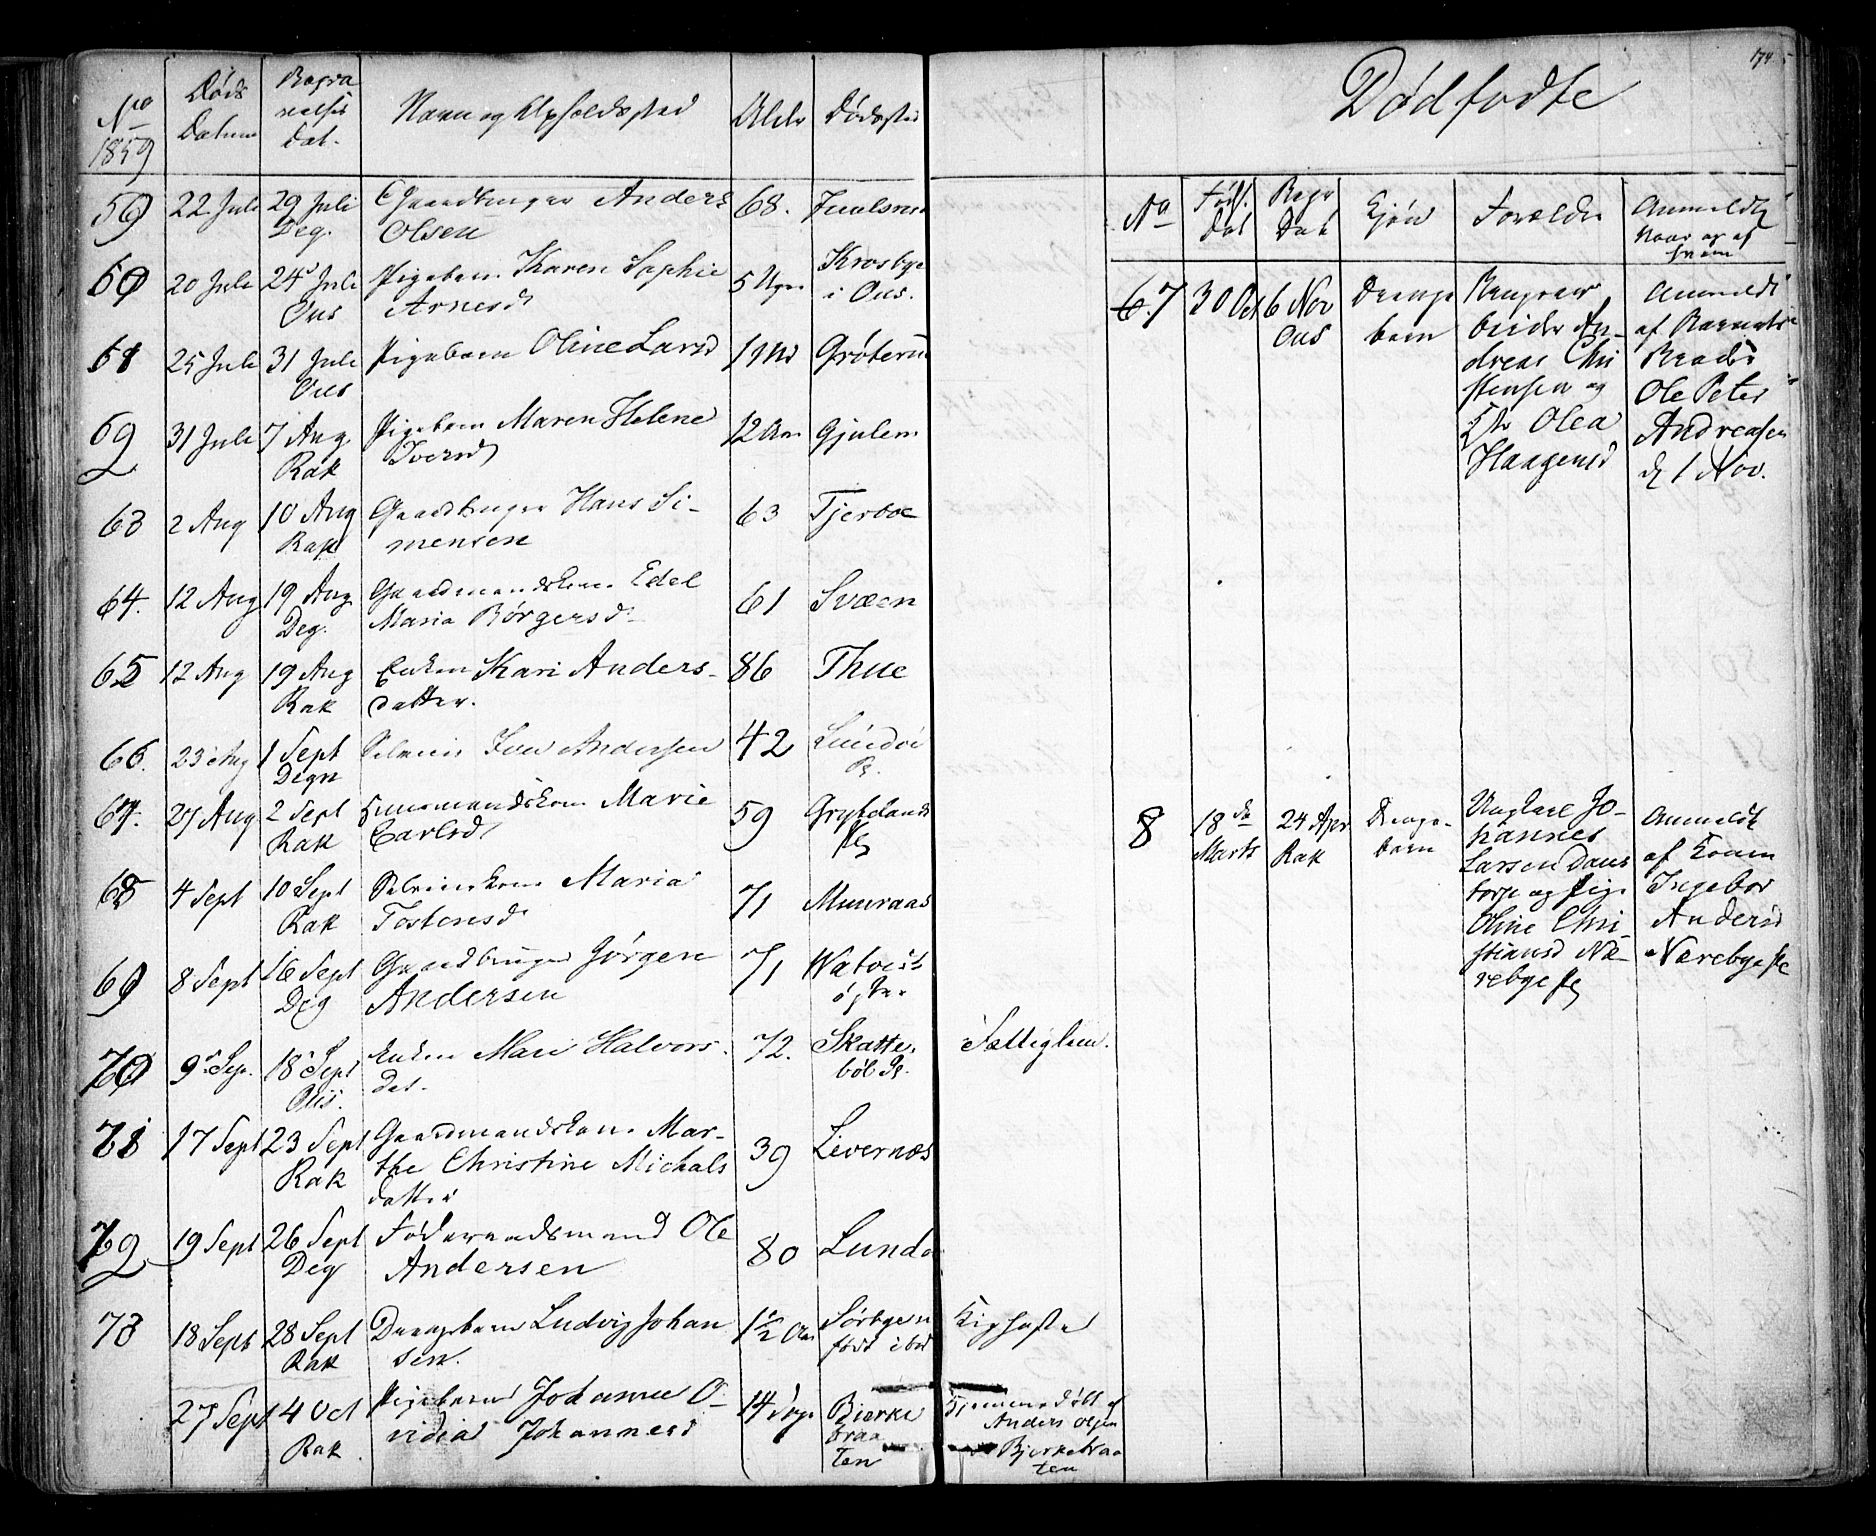 No
1859
Døds
Datum
Begra
velses
Dat.
Navn og Opholdssted
Alder
Dødssted
59
22 Juli
29 Juli
Deg.
Gaardbruger Anders
Olsen
68.
60
20 Juli
24 Juli
Ous
Pigebarn Karen Sophie
Arnesd
5 Uger
Krosbye
i Ous.
61
25 Juli
31 Juli
Ous
Pigebarn Oline Larsd
1 Md
62
31 Juli
7 Aug
Rak
Pigebarn Maren Helene
Iversd
12 Aar
Gjulem
63
2 Aug
10 Aug
Rak
Gaardbruger Hans Si-
mensen
63
Tjerboe
64.
12 Aug
19 Aug
Deg.
Gaardmandskone Edel
Maria Børgersd
61
Svæen
65
12 Aug
19 Aug
Rak
Enken Kari Anders-
datter.
86
Thue
66.
23 Aug
1 Sept
Degn
Selveier Iver Andersen
42
67.
27 Aug
2 Sept
Rak
Huusmandskone Marie
Carlsd
59
Gryteland
Plds
68
4 Sept
10 Sept
Rak
Selveierkone Maria
Tostensd
71
Muuraas
69
8 Sept
16 Sept
Deg
Gaardbruger Jørgen
Andersen
71
Watveit
østre
70
9 Sep.
18 Sept
Ous.
Enken Mari Halvors-
dat.
72.
Skatte-
bøl Pl.
Fattiglem.
71
17 Sept
23 Sept
Rak
Gaardmandskone Mar-
the Christine Michals
datter
39
Livernæs
72
19 Sept
26 Sept
Deg
Føderaadsmand Ole
Andersen
80
Lunde
73
18 Sept
28 Sept
Rak
Drengebarn Ludvig Johan
sen.
1 1/2 Aar
Sørbyen
født i
Kighoste
27 Sept
4 Oct
Rak
Pigebarn Johanne O-
vidia Johannesd
14 Dage
Bjerke
braa
ten
Hjemmedøbt af
Anders Olsen
Bjerkebraa
ten
174
Dødfødte
No
Føds.
Dat
Begr
Dat
Kjøn
Forældre
Anmeldt
Naar og af
hvem
6.7
30 Oct
6 Nov
Ous
Drenge
barn
beider An-
dreas Chri
stensen og
H Olea
Haagensd
Anmeldt
af Barnets
Broder
Ole Peter
Andreasen
d 1 Nov.
8
18de
Marts
24 Apr
Rak
Drenge-
barn
Ungkarl Jo-
hannes
Larsen Dans
torp og Pige
Oline Chri-
stiansd Næ-
rebye Plds
Anmeldt
af Konen
Ingebor
Andersd
Nærebye Pl